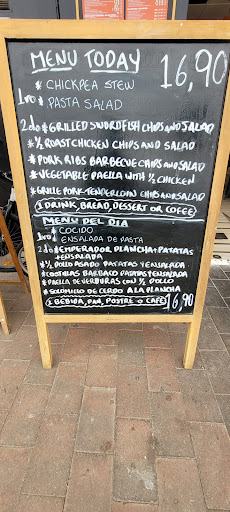 MENU TODAY 16,90
* CHICKPEA STEW
1RO * PASTA SALAD
2do * GRILLED SWORDFISH CHIPS AND SALAD
* 1/2 ROAST CHICKEN CHIPS AND SALAD
* PORK RIBS BARBECUE CHIPS AND SALAD
* VEGETABLE PAELLA WITH 1/2 CHICKEN
* GRILLE PORK TENDERLOIN CHIPS AND SALAD
(1 DRINK, BREAD, DESSERT OR COFEE)
MENU DEL DIA
* COCIDO
1RO * ENSALADA DE PASTA
2do * EMPERADOR PLANCHA PATATAS
+ENSALADA
* 1/2 POLLO ASADO PATATAS Y ENSALADA
* COSTILLAS BARBACO PATATAS Y ENSALADA
* PAELLA DE VERDURAS CON 1/2 POLLO
* SOLOMILLO DE CERDO A LA PLANCHA
(1 BEBIDA, PAN, POSTRE O CAFE) 16,90